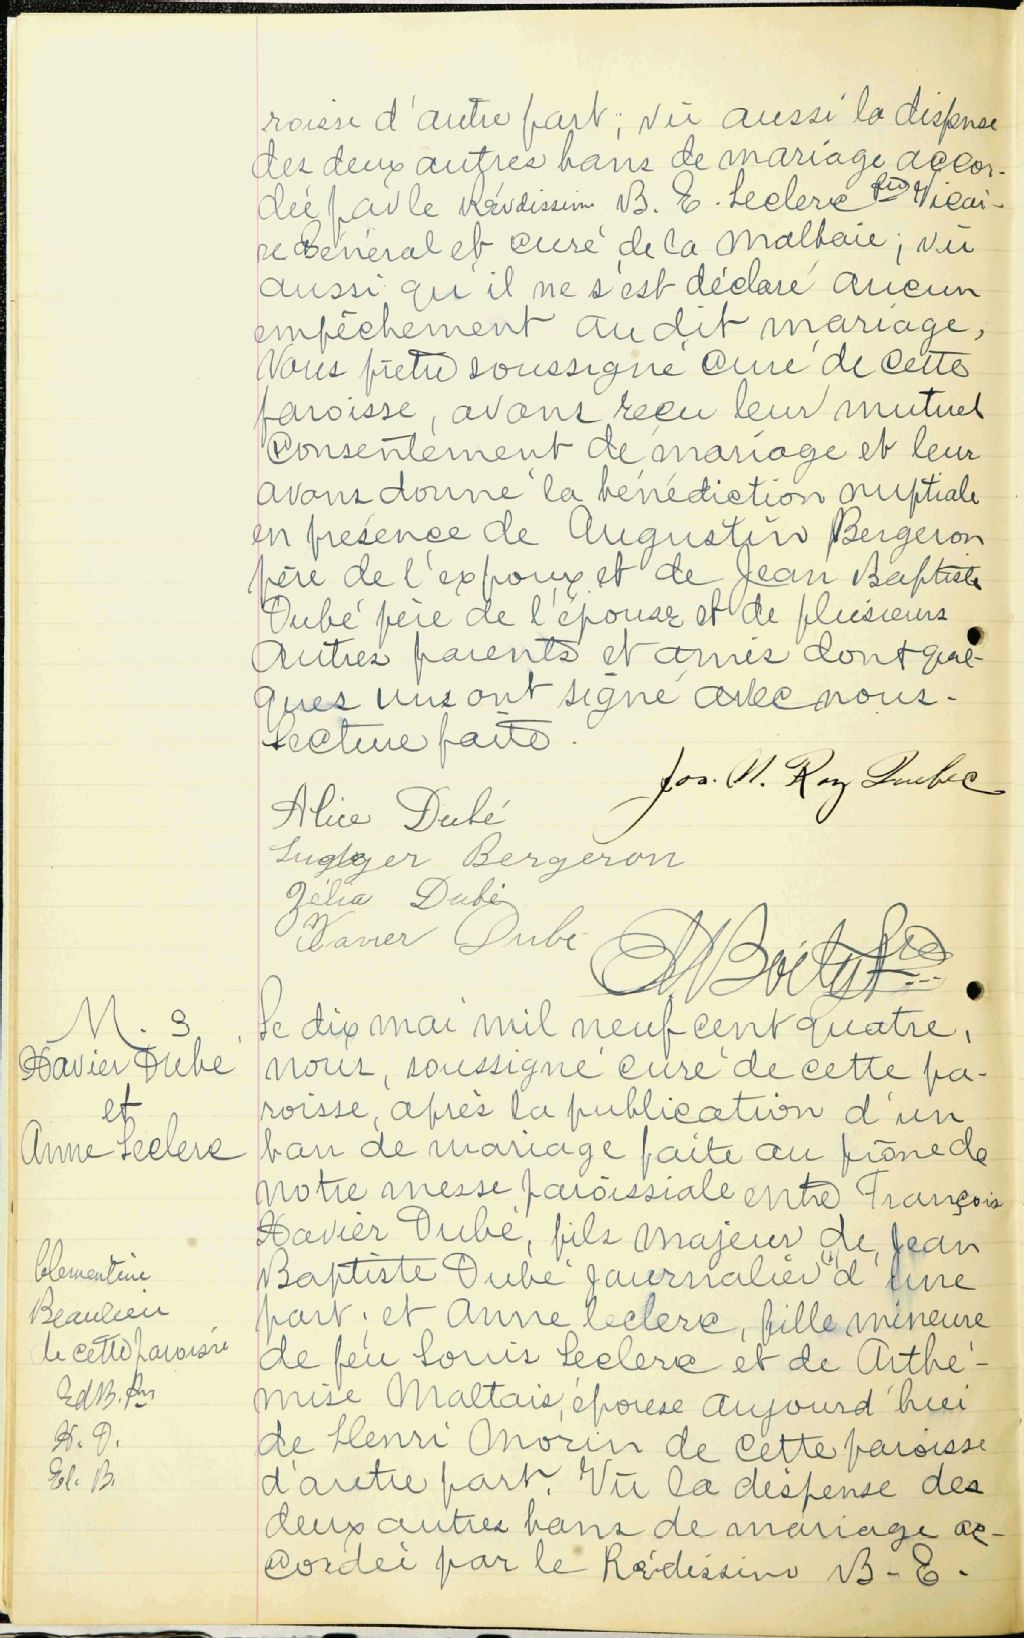 roisse d'autre part; vû aussi la dispense
des deux autres bans de mariage accor-
dée par le Révdissim B. E. Leclerc Ptre Vicai-
re Général et curé de la Malbaie; vû
aussi qu'il ne s'est déclaré aucun
empêchement au dit mariage,
Nous prêtre soussigné Curé de cette
paroisse, avons reçu leur mutuel
Consentement de mariage et leur
avons donné la bénédiction nuptiale
en présence de Augustin Bergeron
père de l'époux et de Jean Baptiste
Dubé père de l'épouse et de plusieurs
autres parents et amis dont quel-
ques uns ont signé avec nous.
Lecture faite.
Jos. N. Roy Quebec
Alice Dubé
Bergeron
Zélia Dubé
Xavier Dubé
Ptre
M. 3
Xavier Dubé
et
Anne Leclerc
Le dix mai mil neuf cent quatre,
nous, soussigné curé de cette pa-
roisse, après la publication d'un
ban de mariage faite au prône de
notre messe paroissiale entre François
Xavier Dubé, fils majeur de Jean
Baptiste Dubé journalier d'une
part; et Anne leclerc, fille mineure
de feu Louis Leclerc et de Arthé-
mise Maltais, épouse aujourd'hui
de Henri Morin de cette paroisse
d'autre part. Vû la dispense des
deux autres bans de mariage ac-
cordée par le Rédissim B. E.
Clementine
Beaulieu
de cette paroisse
Ed B. Ptre
X. D.
El. B.